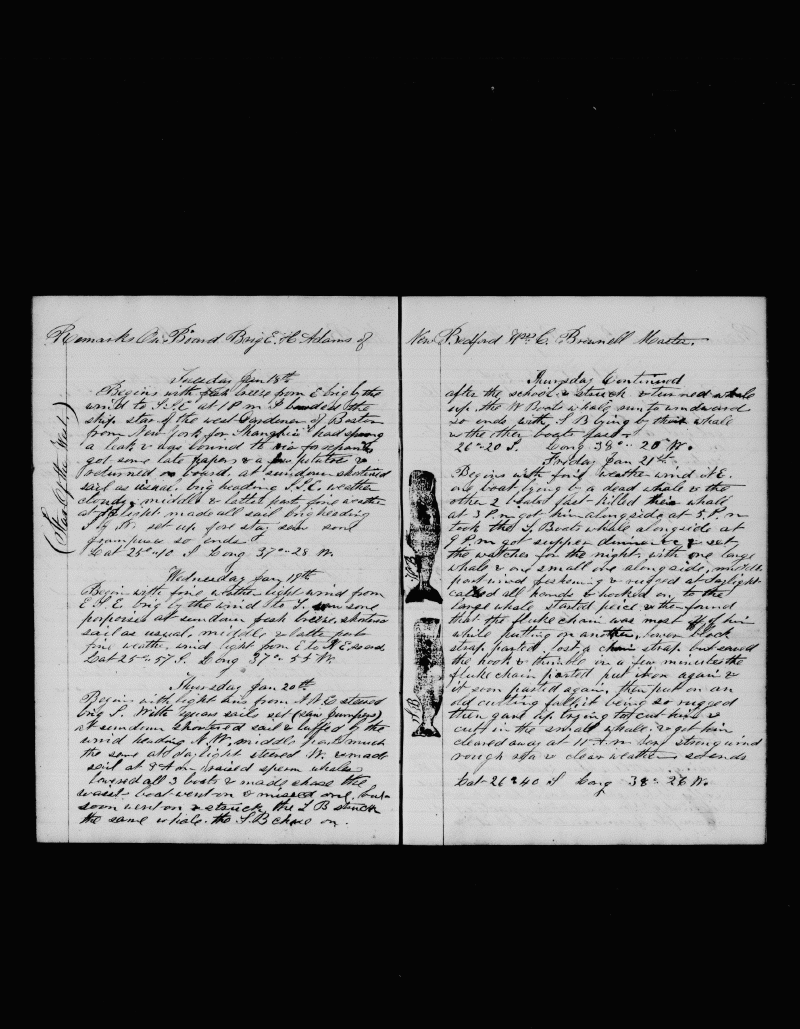 Remarks On Board Brig E. H. Adams of
(Star Of the West.)
Tuesday Jan 18th
Begins with fresh breeze from E brig by the
wind to S.S.E at 1 P m I boarded the
ship Star of the west Gardener of Boston
from New York for Shanghia had sprung
a leak & was bound to rio for repairs
got some late papers & a few potatoes &
returned on board, at sundown shortened
sail as usual. brig heading S.S.E. weather
cloudy. middle & latter part fine weather
at daylight made all sail brig heading
set up fore stay saw some
grampuses so ends
Lat 25°-40 S Long 37°-28 W.
Wednesday Jan 19th
Begin with fine weather light wind from
E.S.E. brig by the wind to S. saw some
porpoises at sundown fresh breeze, shortened
sail as usual, middle & latter part
fine weather, wind light from E to N.E. so ends.
Lat 25°-57 S. Long 37°-55 W.
Thursday Jan 20th
Begins with light airs from N.N.E steered
brig S. With square sails set (
at sundown shortened sail & luffed by the
wind heading N.W. middle part much
the same at daylight steered W. & made
sail at 8 A m raised sperm whales
lowered all 3 boats & made chase the
waist boat went on & missed one, but
soon went on & struck the S B struck
the same whale. the L.B chase on
New Bedford Wm C. Brownell Master.
Thursday Continued
after the school & struck & turned whale
up. the W Boats whale run to windward
so ends with, S B lying by their whale
& the other boats fast
26°-20 S. Long 38°-20 W.
Friday Jan 21st
Begins with fine weather wind at E.
one boat lying by a dead whale & the
other 2 boats fast killed this whale
at 3 P m got him alongside at 5 P.m
took the S. Boats whale alongside at
9 P.m got supper dinner & set
the watches for the night, with one large
whale & one small one alongside, middle
part wind freshening & rugged at daylight
called all hands & hooked on to the
large whale started peice & then found
that the fluke chain was most off of him
while putting on another, lower block
strap parted, lost a chain strap but saved
the hook & thimble in a few minutes the
fluke chain parted put it on again &
it soon parted again, then put on an
old cutting fall, it being so rugged
then gave up trying to cut him &
cut in the small whale. & got him
cleared away at 11 A.m. very strong wind
rough sea & clear weather so ends
Lat 26°40 S Long 38°-26 W.
W.B
S.B